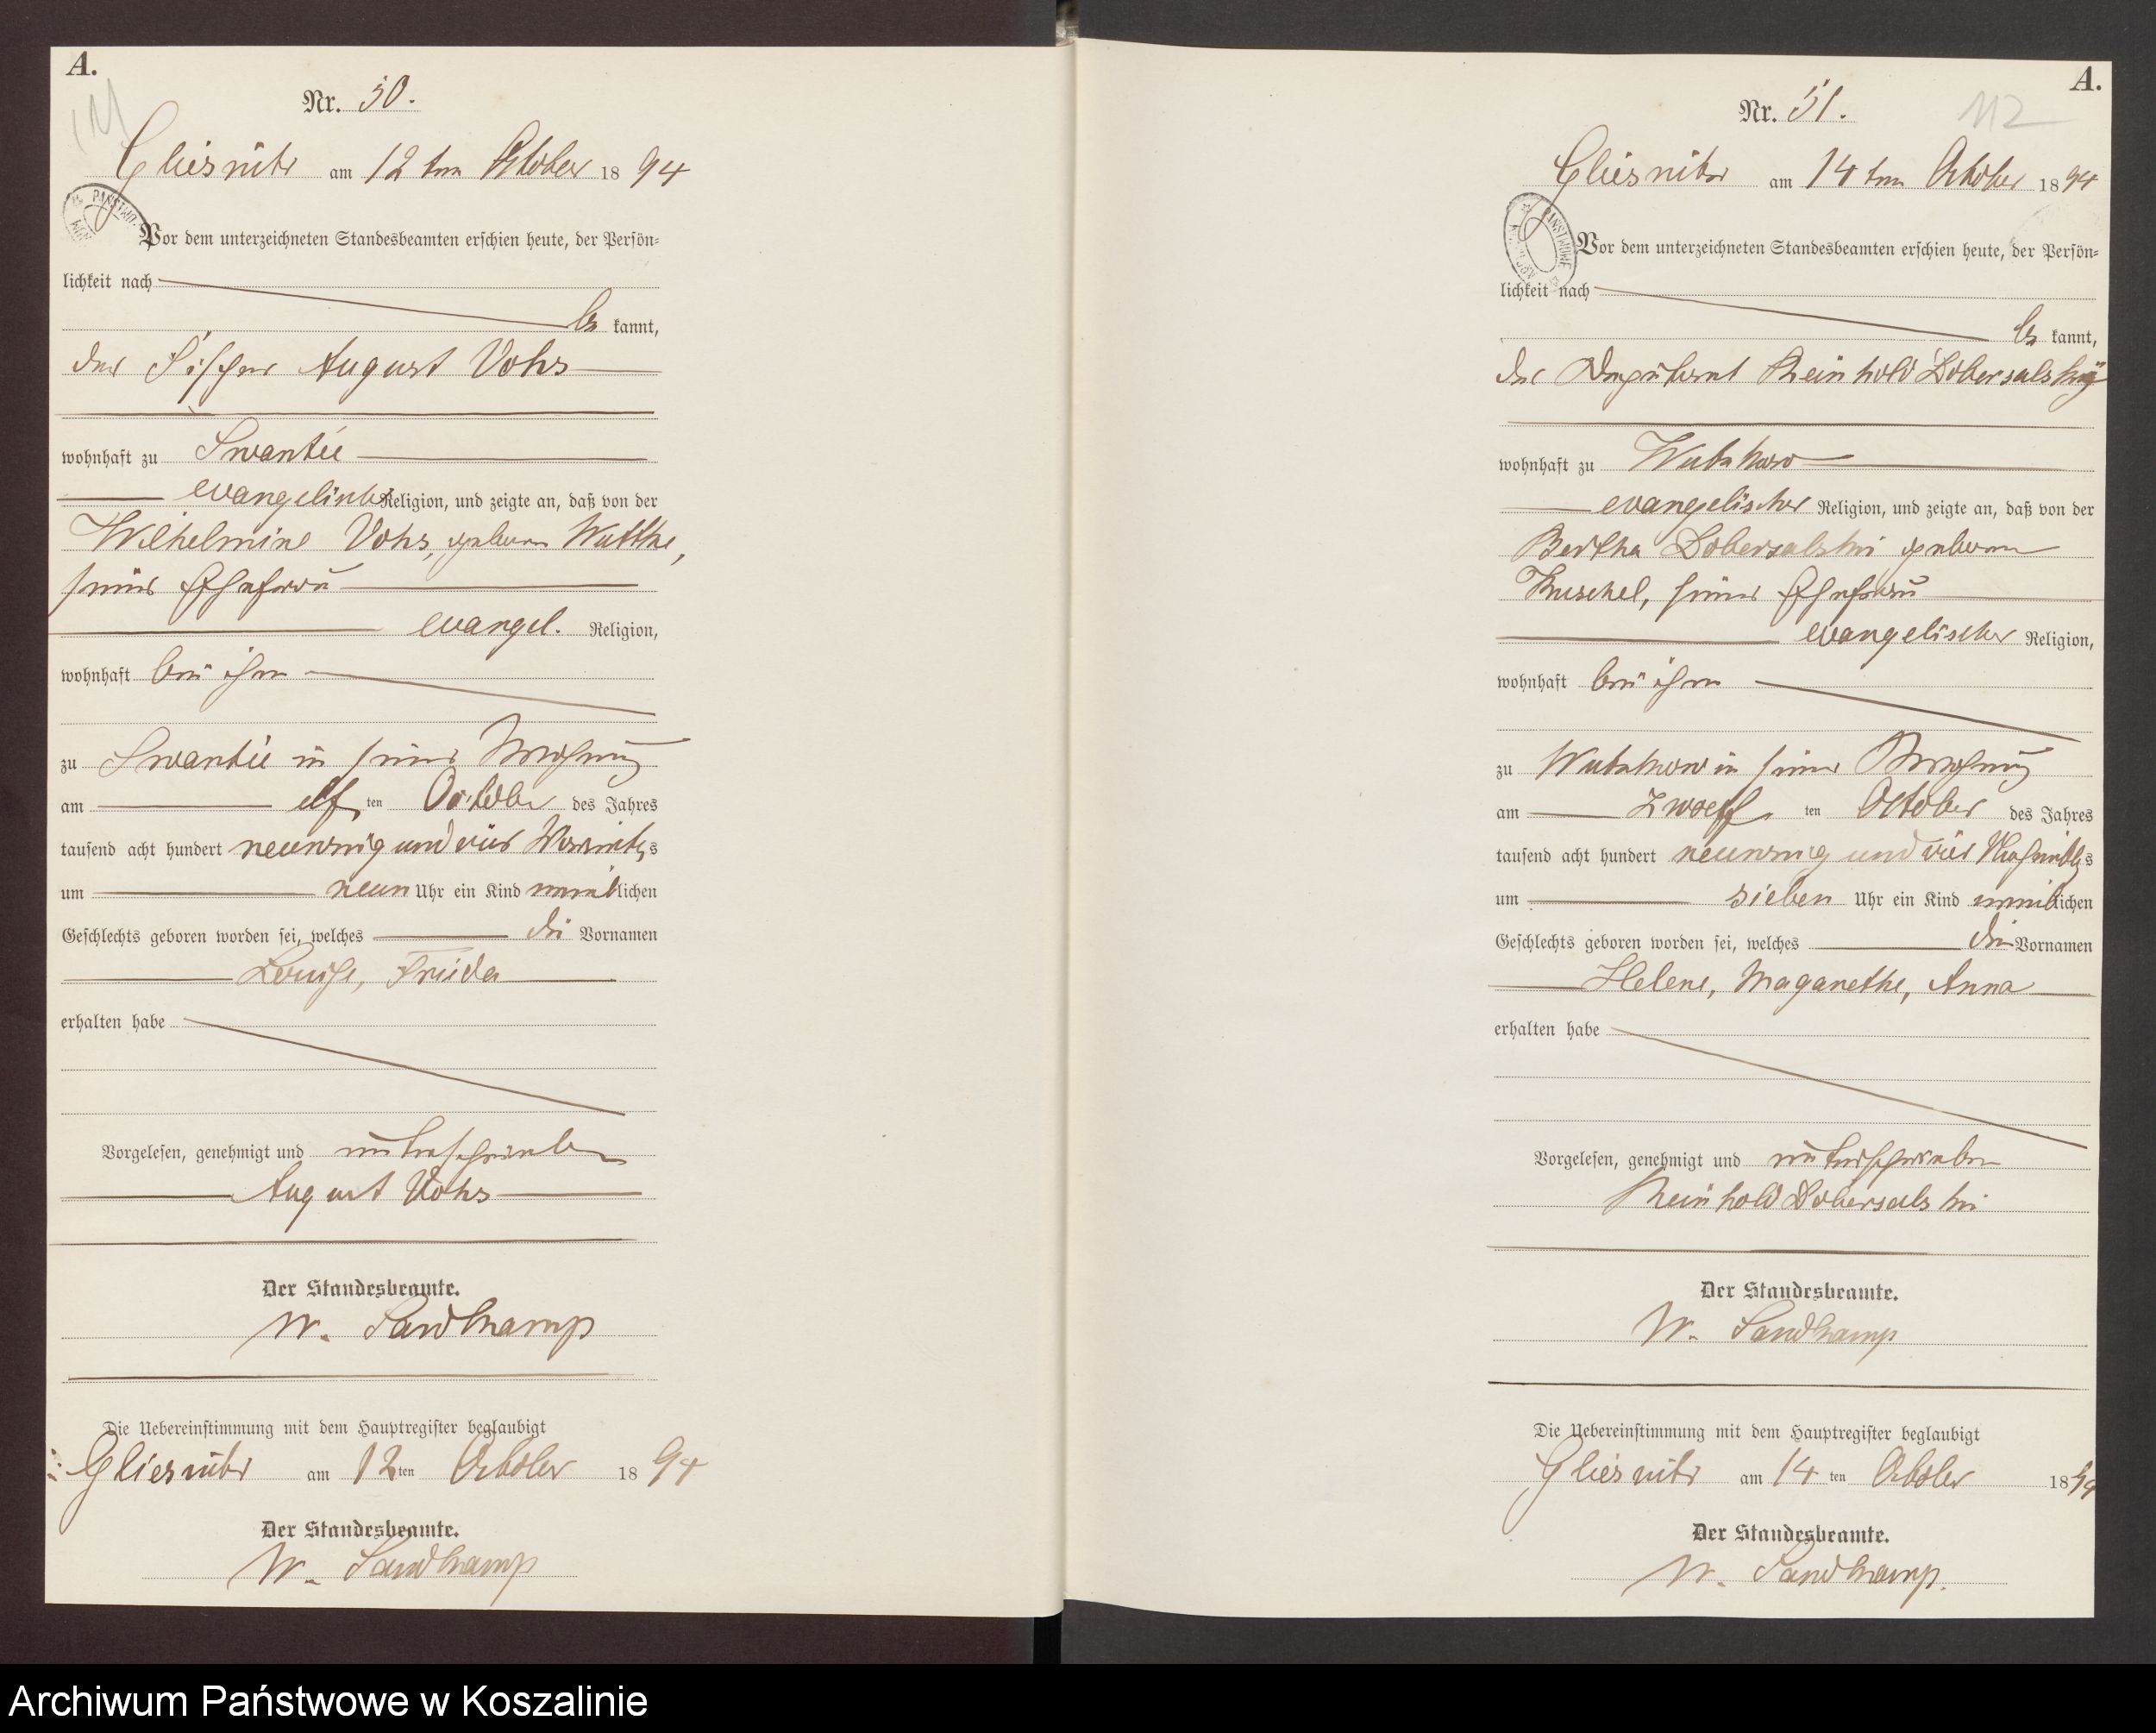 A.
111
Nr. 50.
Gliesnitz am 12ten October 1894
Vor dem unterzeichneten Standesbeamten erschien heute, der Persön=
lichkeit nach
be kannt,
der Fischer August Vohs
wohnhaft zu Swantée
evangelischer Religion, und zeigte an, daß von der
Wilhelmine Vohs, geboren Watthe,
seiner Ehefrau
evangel. Religion,
wohnhaft bei ihm
zu Swantée in seiner Wohnung
am elf ten October des Jahres
tausend acht hundert neunzig und vier Vormittags
um neun Uhr ein Kind weiblichen
Geschlechts geboren worden sei, welches die Vornamen
Louise, Frieda
erhalten habe
Vorgelesen, genehmigt und unterschrieben
August Vohs
Der Standesbeamte.
W. Sandkamp
Die Uebereinstimmung mit dem Hauptregister beglaubigt
Gliesnitz am 12ten October 1894
Der Standesbeamte.
W. Sandkamp
A.
112
Nr. 51.
Gliesnitz am 14ten October 1894
PAŃSTWOWE
Vor dem unterzeichneten Standesbeamten erschien heute, der Persön=
lichkeit nach
be kannt,
der Deputant Reinhold Dobersalski
wohnhaft zu
evangelischer Religion, und zeigte an, daß von der
Bertha Dobersalski geboren
Kuschel, seiner Ehefrau
evangelischer Religion,
wohnhaft bei ihm
zu in seiner Wohnung
am zwoelf ten October des Jahres
tausend acht hundert neunzig und vier Nachmittags
um sieben Uhr ein Kind weiblichen
Geschlechts geboren worden sei, welches die Vornamen
Helene, Maganethe, Anna
erhalten habe
Vorgelesen, genehmigt und unterschrieben
Reinhold Dobersalski
Der Standesbeamte.
W. Sandkamp
Die Uebereinstimmung mit dem Hauptregister beglaubigt
Gliesnitz am 14ten October 1894
Der Standesbeamte.
W. Sandkamp.
Archiwum Państwowe w Koszalinie